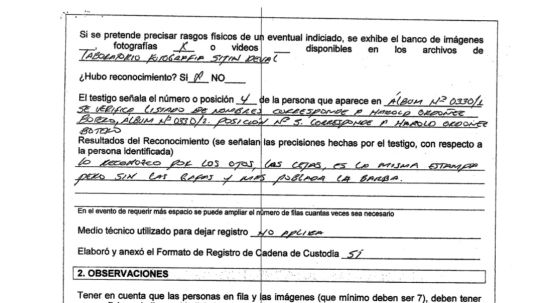 Si se pretende precisar rasgos físicos de un eventual indiciado, se exhibe el banco de imágenes
, fotografías X o videos ___ disponibles en los archivos de
LABORATORIO FOTOGRAFIA SIJIN DEVAL
¿Hubo reconocimiento? SI X NO___
El testigo señala el número o posición 4 de la persona que aparece en ALBUM Nº 0330/1
SE VERIFICA LISTADO DE NOMBRES CORRESPONDE A HAROLD ORDOÑEZ
BOTERO, ALBUM Nº 0330/2. POSICION Nº 5. CORRESPONDE A HAROLD ORDOÑEZ
BOTERO
Resultados del Reconocimiento (se señalan las precisiones hechas por el testigo, con respecto a
la persona identificada)
LO RECONOZCO POR LOS OJOS, LAS CEJAS, ES LA MISMA ESTAMPA
PERO SIN LAS GAFAS Y MAS POBLADA LA BARBA.
En el evento de requerir más espacio se puede ampliar el número de filas cuantas veces sea necesario
Medio técnico utilizado para dejar registro NO APLICA
Elaboró y anexó el Formato de Registro de Cadena de Custodia SI
2. OBSERVACIONES
Tener en cuenta que las personas en fila y las imágenes (que mínimo deben ser 7), deben tener